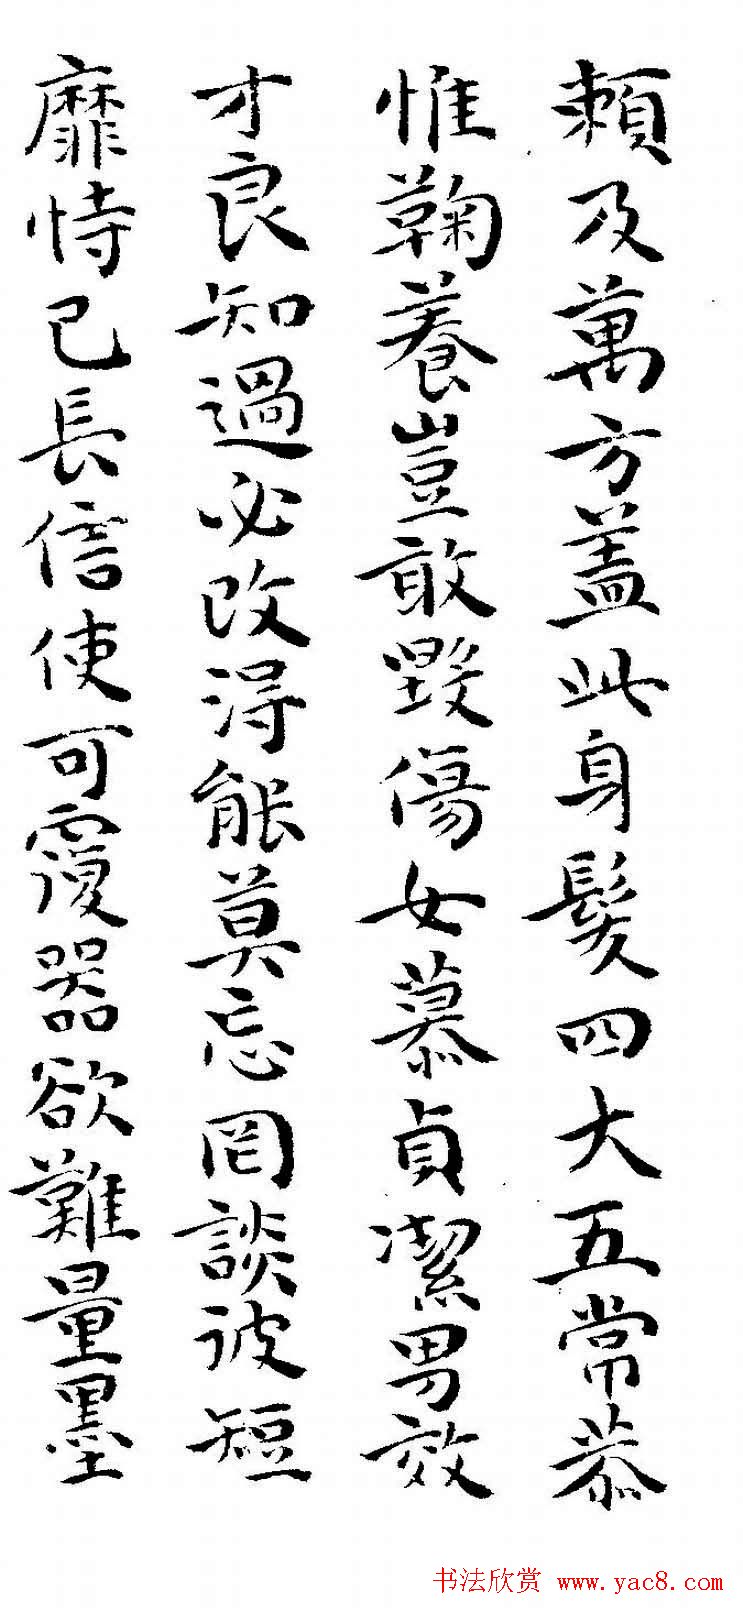 賴及萬方蓋此身髮四大五常恭
惟鞠養豈敢毀傷女慕貞潔男效
才良知過必改得能莫忘罔談彼短
靡恃己長信使可覆器欲難量墨
书法欣赏 www.yac8.com